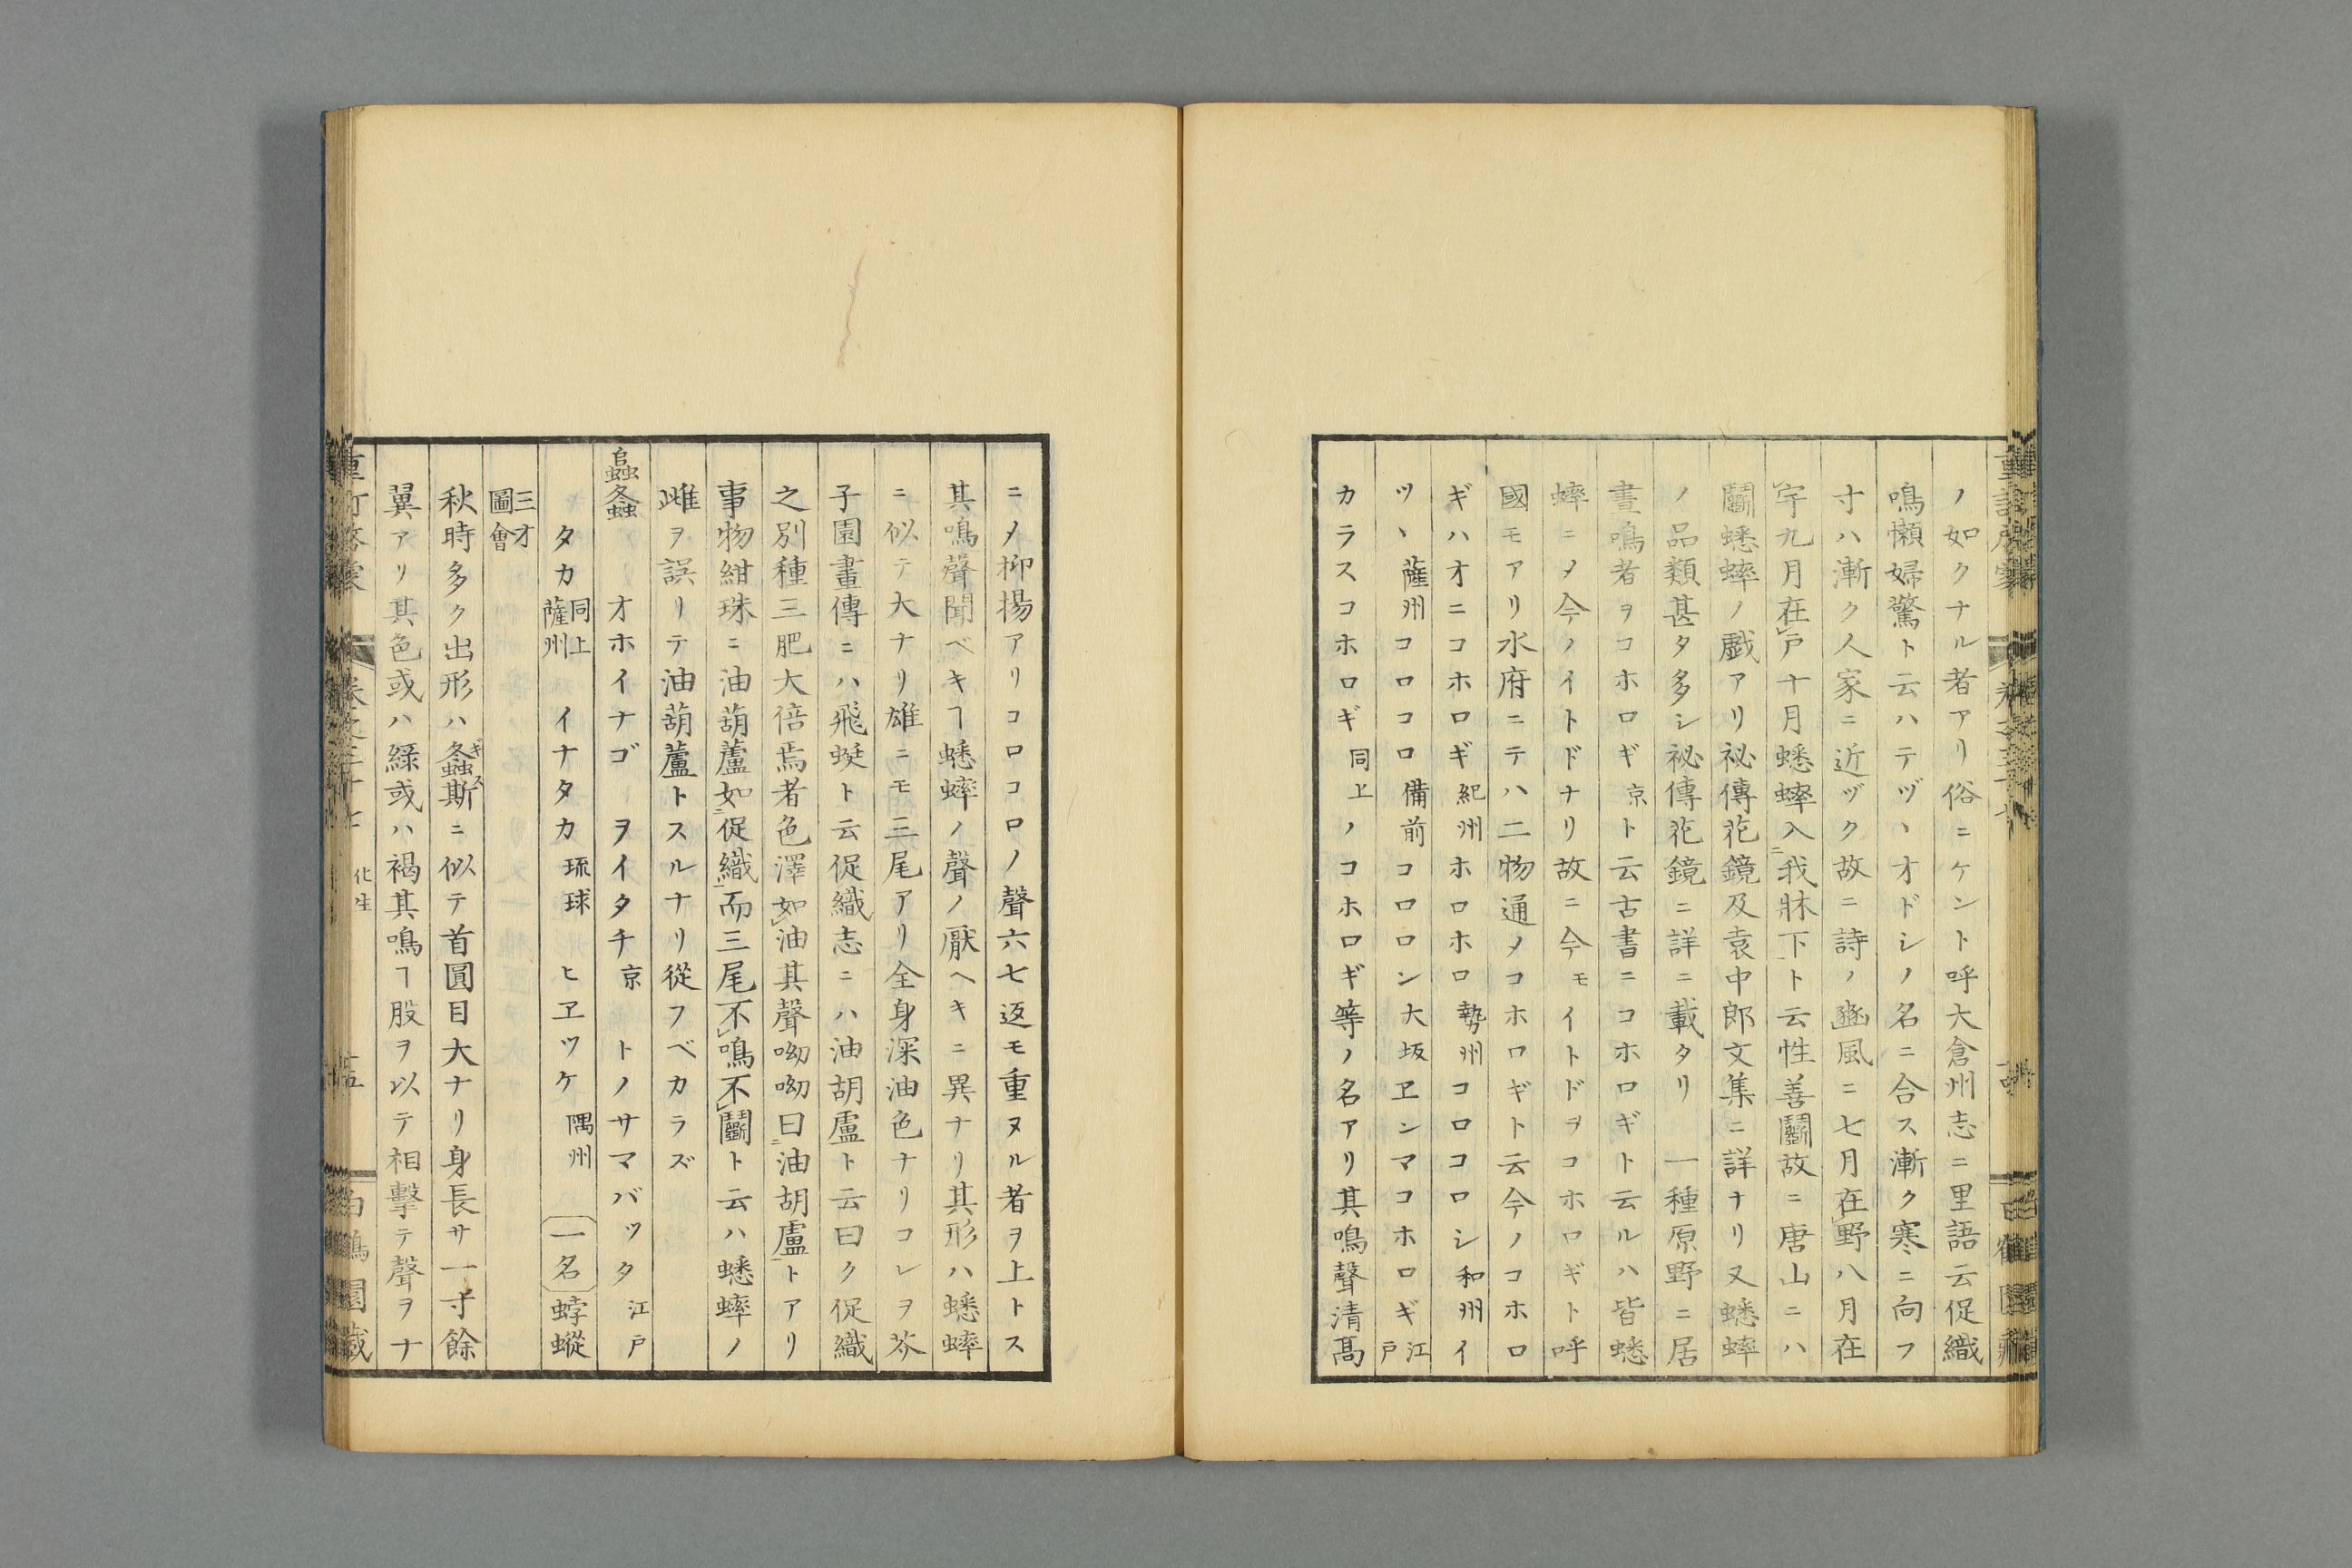 ノ如クナル者アリ俗ニケント呼大倉州志ニ里語云促織
鳴懶婦驚ト云ハテヅヽオドシノ名ニ合ス漸ク寒ニ向フ
寸ハ漸ク人家ニ近ヅク故ニ詩ノ豳風ニ七月在野八月在
宇九月在戸十月蟋蟀入我牀下ト云性善鬭故ニ唐山ニハ
鬭蟋蟀ノ戯アリ祕傳花鏡及袁中郎文集ニ詳ナリ又蟋蟀
ノ品類甚タ多シ祕傳花鏡ニ詳ニ載タリ 一種原野ニ居
晝鳴者ヲコホロギ京ト云古書ニコホロギト云ルハ皆蟋
蟀ニメ今ノイトドナリ故ニ今モイトドヲコホロギト呼
國モアリ水府ニテハ二物通メコホロギト云今ノコホロ
ギハオニコホロギ紀州ホロホロ勢州コロコロシ和州イ
ツヽ薩州コロコロ備前コロロン大坂ヱンマコホロギ江戸
カラスコホロギ同上ノコホロギ等ノ名アリ其鳴聲清髙
ニメ抑揚アリコロコロノ聲六七返モ重ヌル者ヲ上トス
其鳴聲聞ベキヿ蟋蟀ノ聲ノ厭ヘキニ異ナリ其形ハ蟋蟀
ニ似テ大ナリ雄ニモ三尾アリ全身深油色ナリコレヲ芥
子園畫傳ニハ飛蜨ト云促織志ニハ油胡盧ト云曰ク促織
之別種三肥大倍焉者色澤如油其聲呦呦曰油胡盧トアリ
事物紺珠ニ油葫蘆如促織而三尾不鳴不鬭ト云ハ蟋蟀ノ
雌ヲ誤リテ油葫蘆トスルナリ從フベカラズ
䘀螽 オホイナゴ ヲイタチ京 トノサマバッタ江戸
タカ同上薩州 イナタカ琉球 ヒヱツケ隅州 一名蛑䗥
三才圖會
秋時多ク出形ハ螽斯ギスニ似テ首圓目大ナリ身長サ一寸餘
翼アリ其色或ハ緑或ハ褐其鳴ヿ股ヲ以テ相擊テ聲ヲナ
卷之三十七 化生